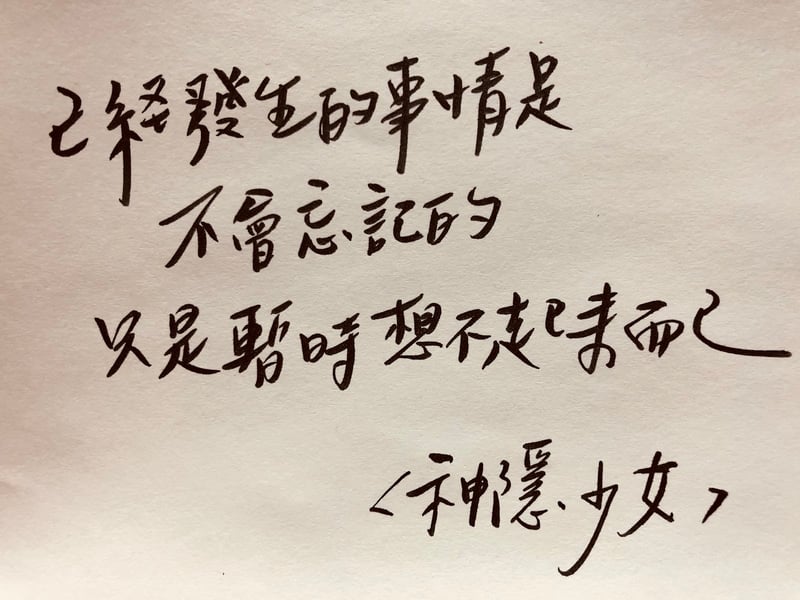 已經發生的事情是
不會忘記的
只是暫時想不起來而已
〈神隱少女〉